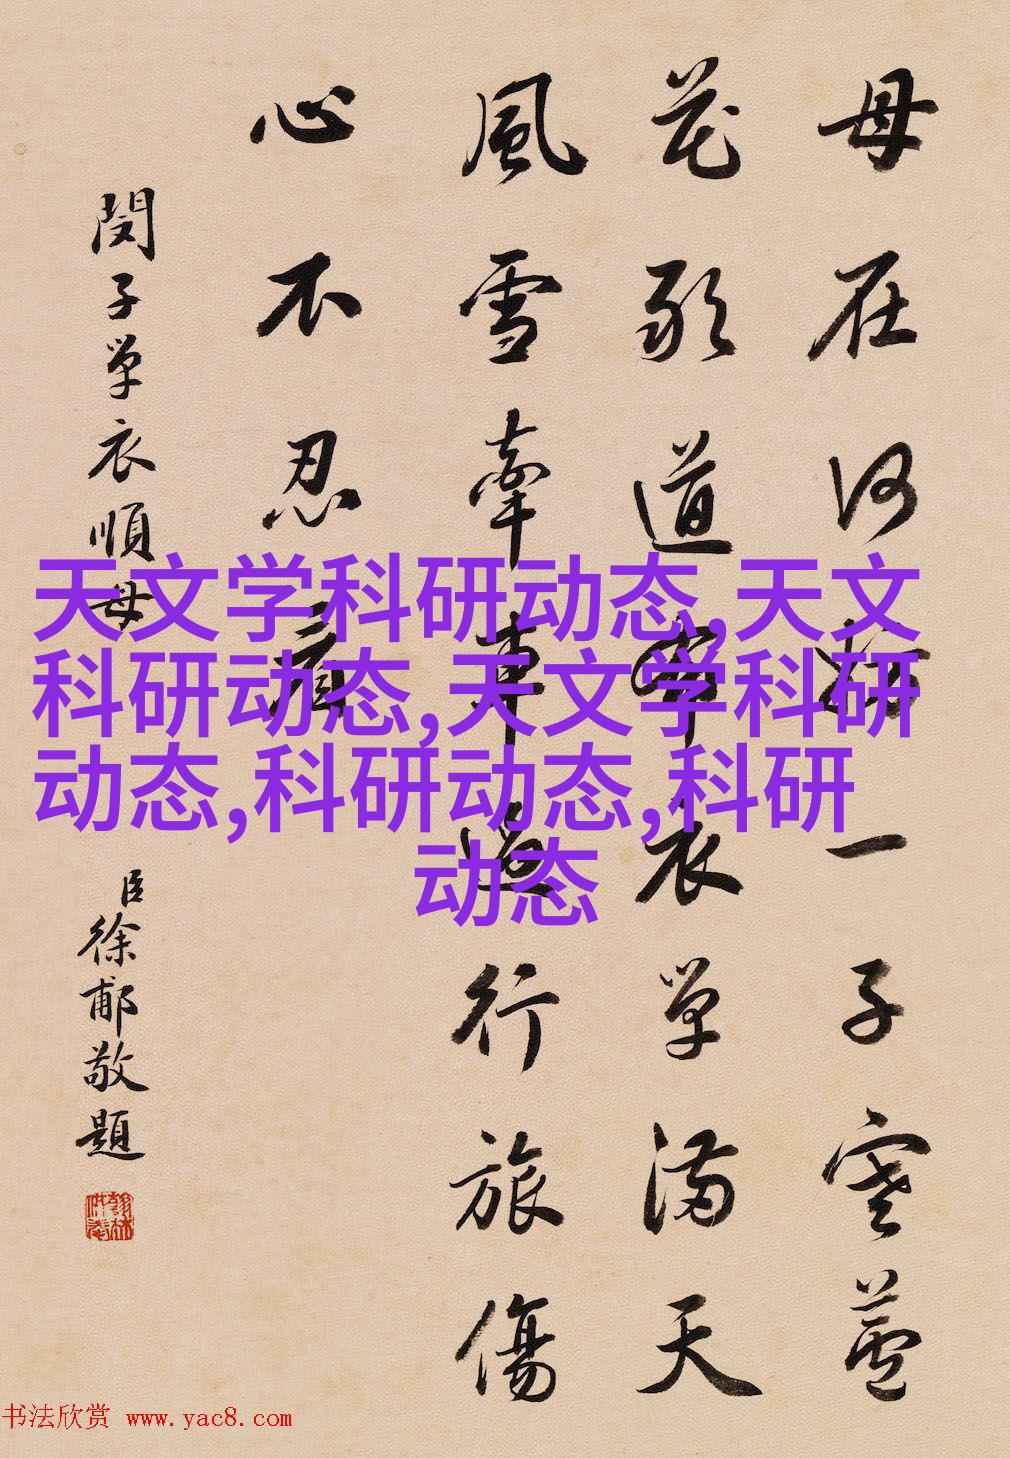 母在何一子寒蘆
花敢道衣單滿天
風雪牽車行旅傷
心不忍
閔子單衣順母
臣徐郙敬題
天文学科研动态,天文
科研动态,天文学科研
动态,科研动态,科研
动态
书法欣赏 www.yac8.com